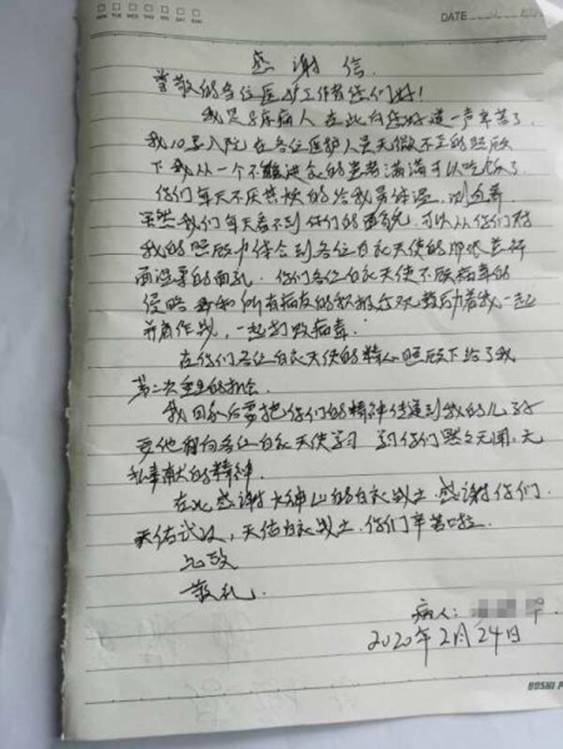 MON TUE WED THU FRI SAT SUN
DATE
感谢信
尊敬的各位医护工作者你们好!
我是8床病人 在此向你们道一声辛苦了
我10号入院 在各位医护人员无微不至的照顾
下 我从一个不能进食的患者 满满可以吃饭了
你们每天不厌其烦的给我量体温,测血氧
虽然我们每天看不到你们的面貌,可以从你们对
我的照顾中体会到各位白衣天使的
面温柔的面孔.你们各位白衣天使不顾病毒的
侵略 我和所有病友的积极乐观鼓励着我一起
并肩作战,一起打败病毒.
在你们各位白衣天使的精心照顾下给了我
第二次重生的机会.
我回家后要把你们的精神传递到我的儿孙
要他们向各位白衣天使学习 学习你们默默无闻,无
私奉献的精神.
在此感谢火神山的白衣战士 感谢你们.
天佑武汉,天佑白衣战士.你们辛苦啦.
此致
敬礼.
病人:
2020年2月24日